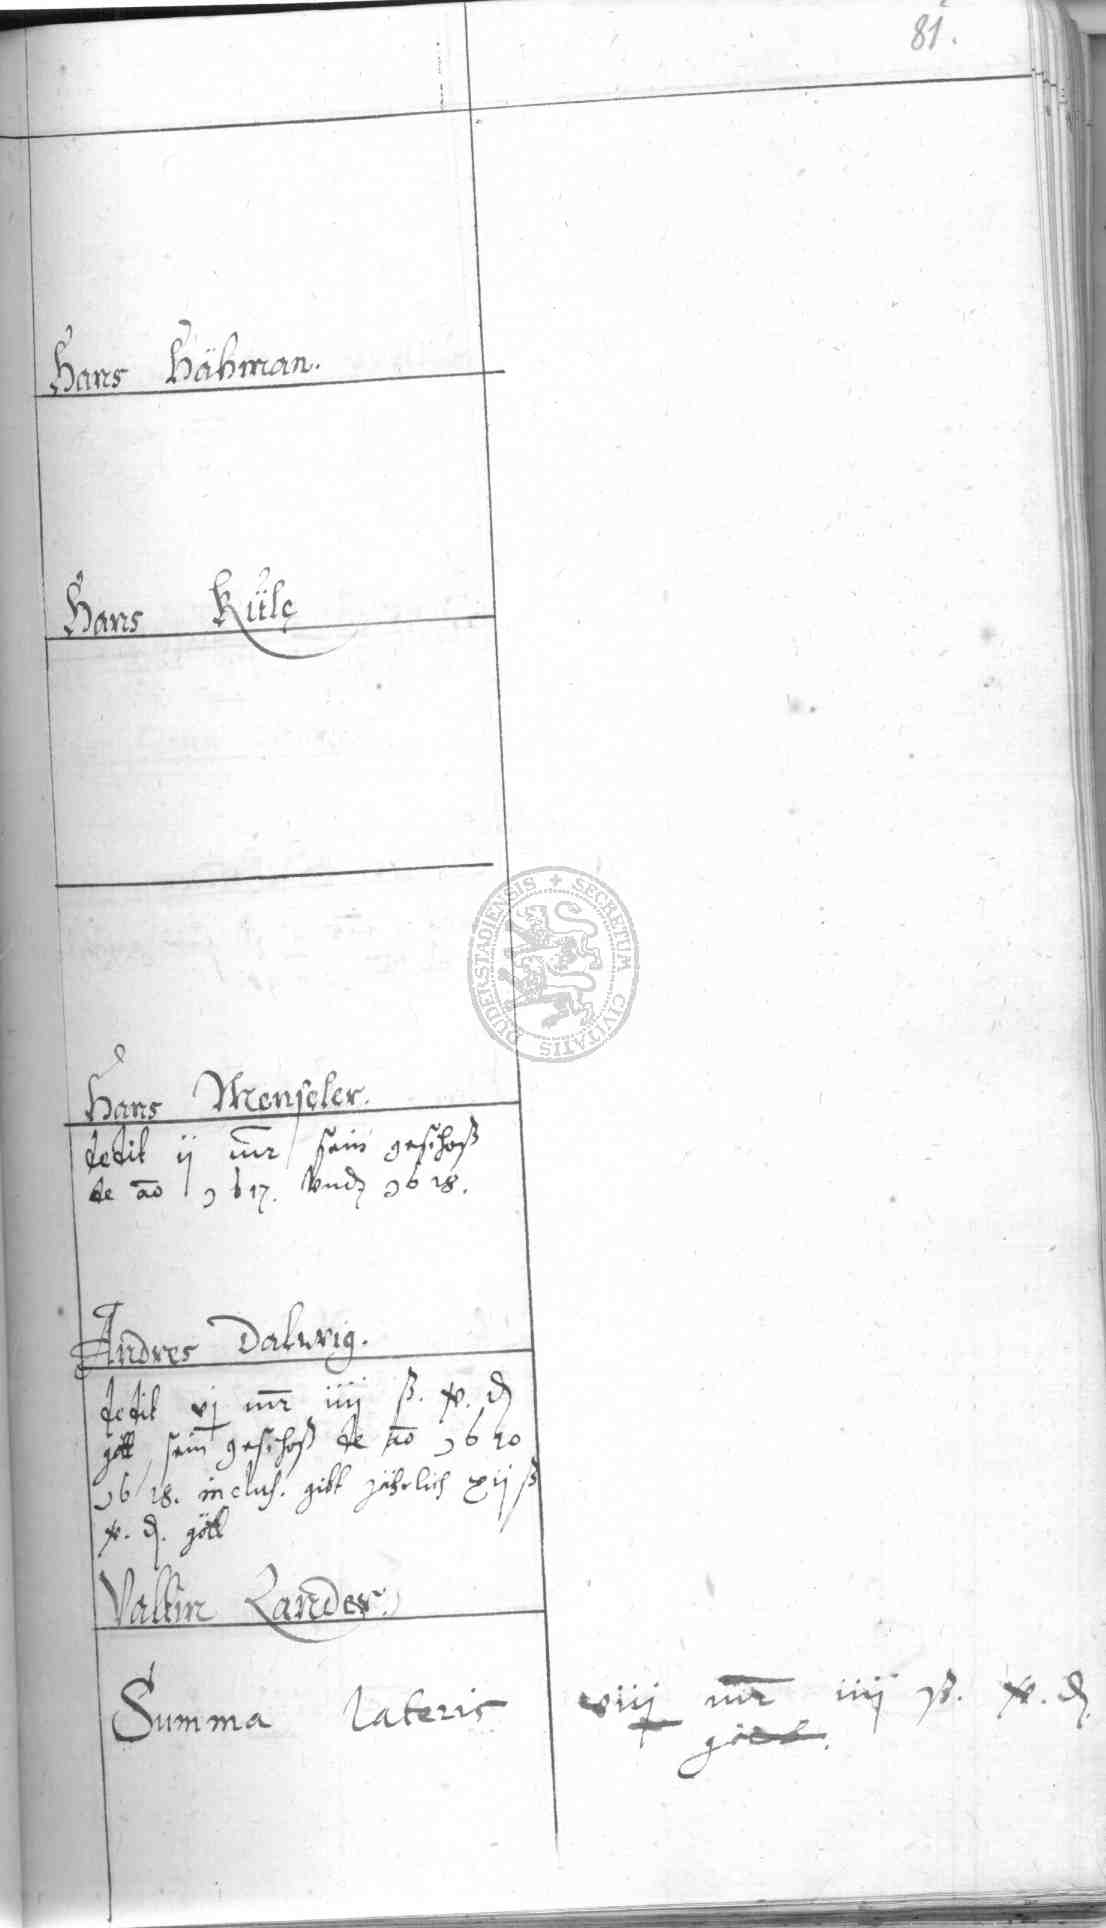 81.
Hans Hähman.
Hans Küle
SECRETUM CIVITATIS DUDERSTADIENSIS
Hans Menseler.
dedit ij mr sein geschoß
de ao 1617. vnd 1618.
Andres Dalwig.
dedit vj mr iiij ß. x. d
gött sein geschoß de ao 1610
1618. inclus. gibt jährlich xij ß
x. d. gött
Valtin Zander.
Summa lateris viij mr iiij ß. x. d.
gött.